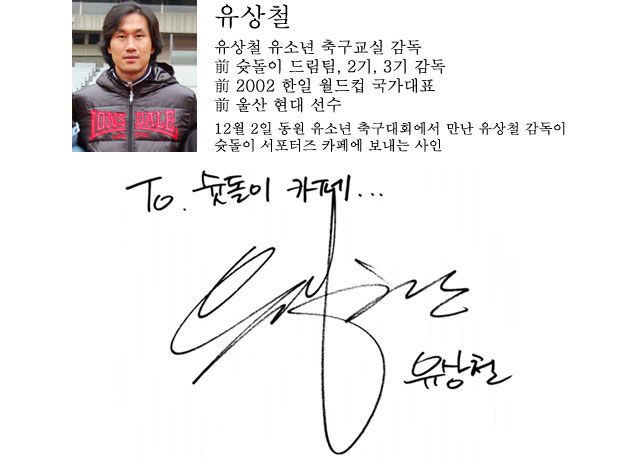 유상철
유상철 유소년 축구교실 감독
前 슛돌이 드림팀, 2기, 3기 감독
前 2002 한일 월드컵 국가대표
前 울산 현대 선수
12월 2일 동원 유소년 축구대회에서 만난 유상철 감독이
슛돌이 서포터즈 카페에 보내는 사인
LONSDALE
To. 슛돌이 카페...
유상철